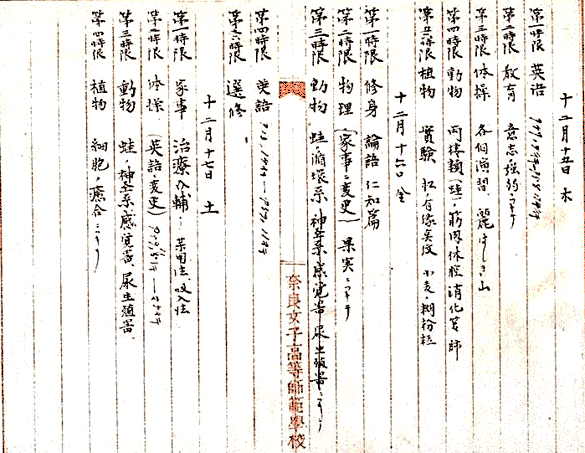 十二月十五日 木
第一時限 英語
第二時限 教育 意志強弱ニツキ
第三時限 体操 各個演習
第四時限 動物 両棲類(蛙)筋肉体腔消化器
第五時限 植物 實験 小麦、糊粉粒
十二月十六日 金
第一時限 修身 論語 仁知篇
第二時限 物理(家事ニ変更)果実ニツキ
第三時限 動物 蛙、循環系、神経系、感覚器、尿生殖器ニツキ
第四時限 英語
第六時限 選修
奈良女子高等師範學校
十二月十七日 土
第一時限 家事 治療介輔 吸入法
第二時限 体操(英語ニ変更)
第三時限 動物 蛙、神経系感覚器、尿生殖器
第四時限 植物 細胞ノ癒合ニツキ